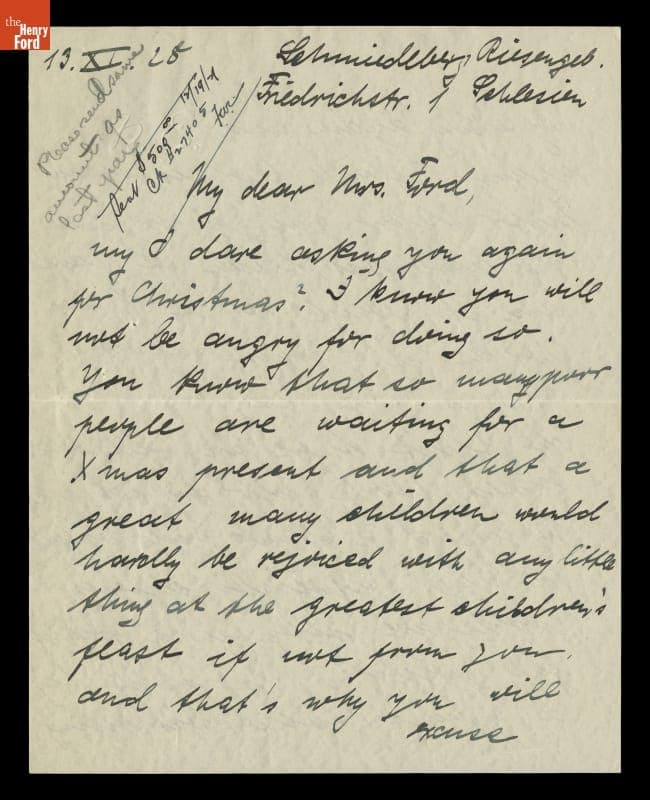 the
Henry
Ford
13. XI. 25
Schmiedeberg, Riesengeb.
Friedrichstr. 1 Schlesien
Please send same
amount as
last year
Sent $500 00 12/19/21
CK B27405
My dear Mrs. Ford,
my I dare asking you again
for Christmas? I know you will
not be angry for doing so.
You know that so many poor
people are waiting for a
Xmas present and that a
great many children would
hardly be rejoiced with any little
thing at the greatest children's
feast if not from you.
and that's why you will
excuse